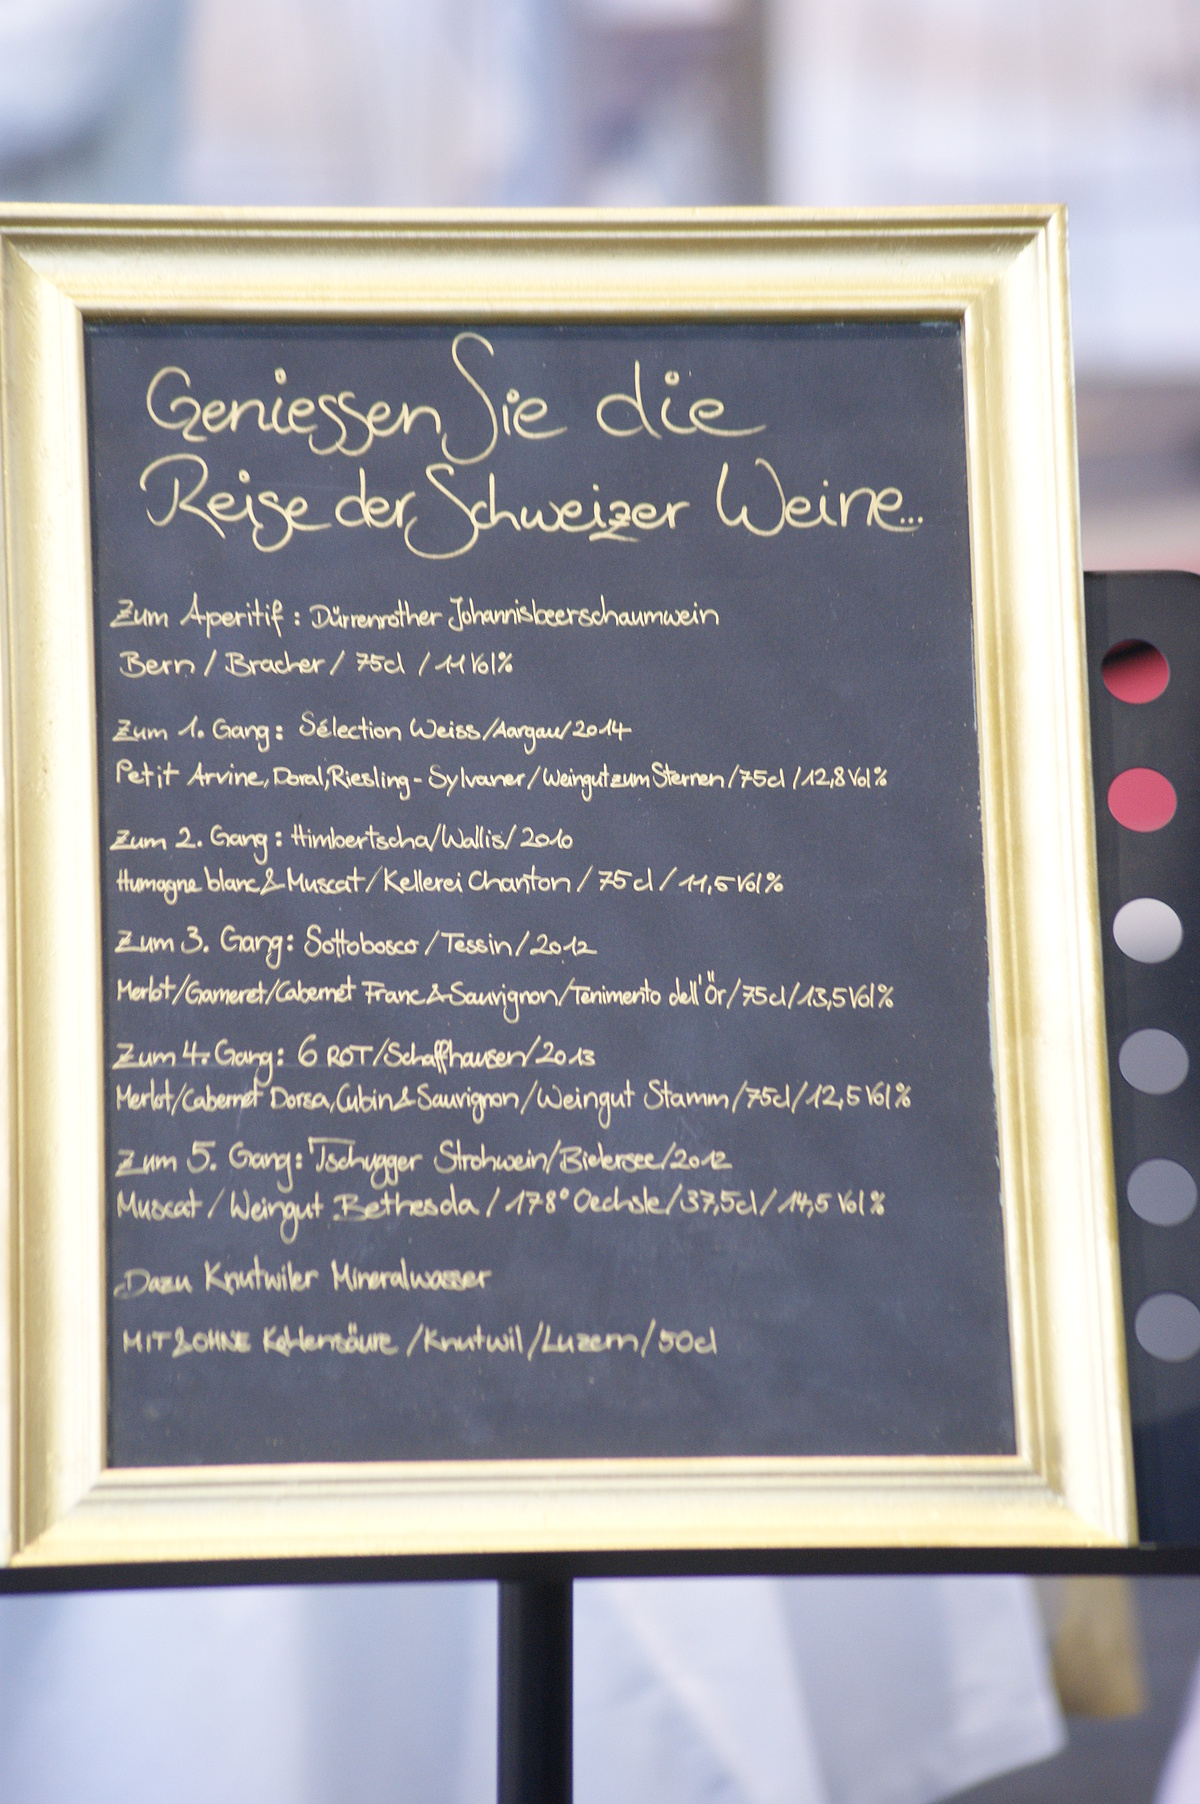 Geniessen Sie die
Reise der Schweizer Weine...
Zum Aperitif: Dürrenrother Johannisbeerschaumwein
Bern / Bracher / 75cl / 11 Vol%
Zum 1. Gang: Sélection Weiss/Aargau/2014
Petit Arvine, Doral, Riesling-Sylvaner/Weingut zum Sternen/75cl/12,8 Vol%
Zum 2. Gang: Himbertscha/Wallis/2010
Humagne blanc & Muscat/Kellerei Chanton/75cl/11,5 Vol%
Zum 3. Gang: Sottobosco/Tessin/2012
Merlot/Gameret/Cabernet Franc & Sauvignon/Tenimento dell'Ör/75cl/13,5 Vol%
Zum 4. Gang: 6 ROT/Schaffhausen/2013
Merlot/Cabernet Dorsa, Cubin & Sauvignon/Weingut Stamm/75cl/12,5 Vol%
Zum 5. Gang: Tschugger Strohwein/Bielersee/2012
Muscat/Weingut Bethesda/178° Oechsle/37,5cl/14,5 Vol%
Dazu Knutwiler Mineralwasser
MIT & OHNE Kohlensäure/Knutwil/Luzern/50cl